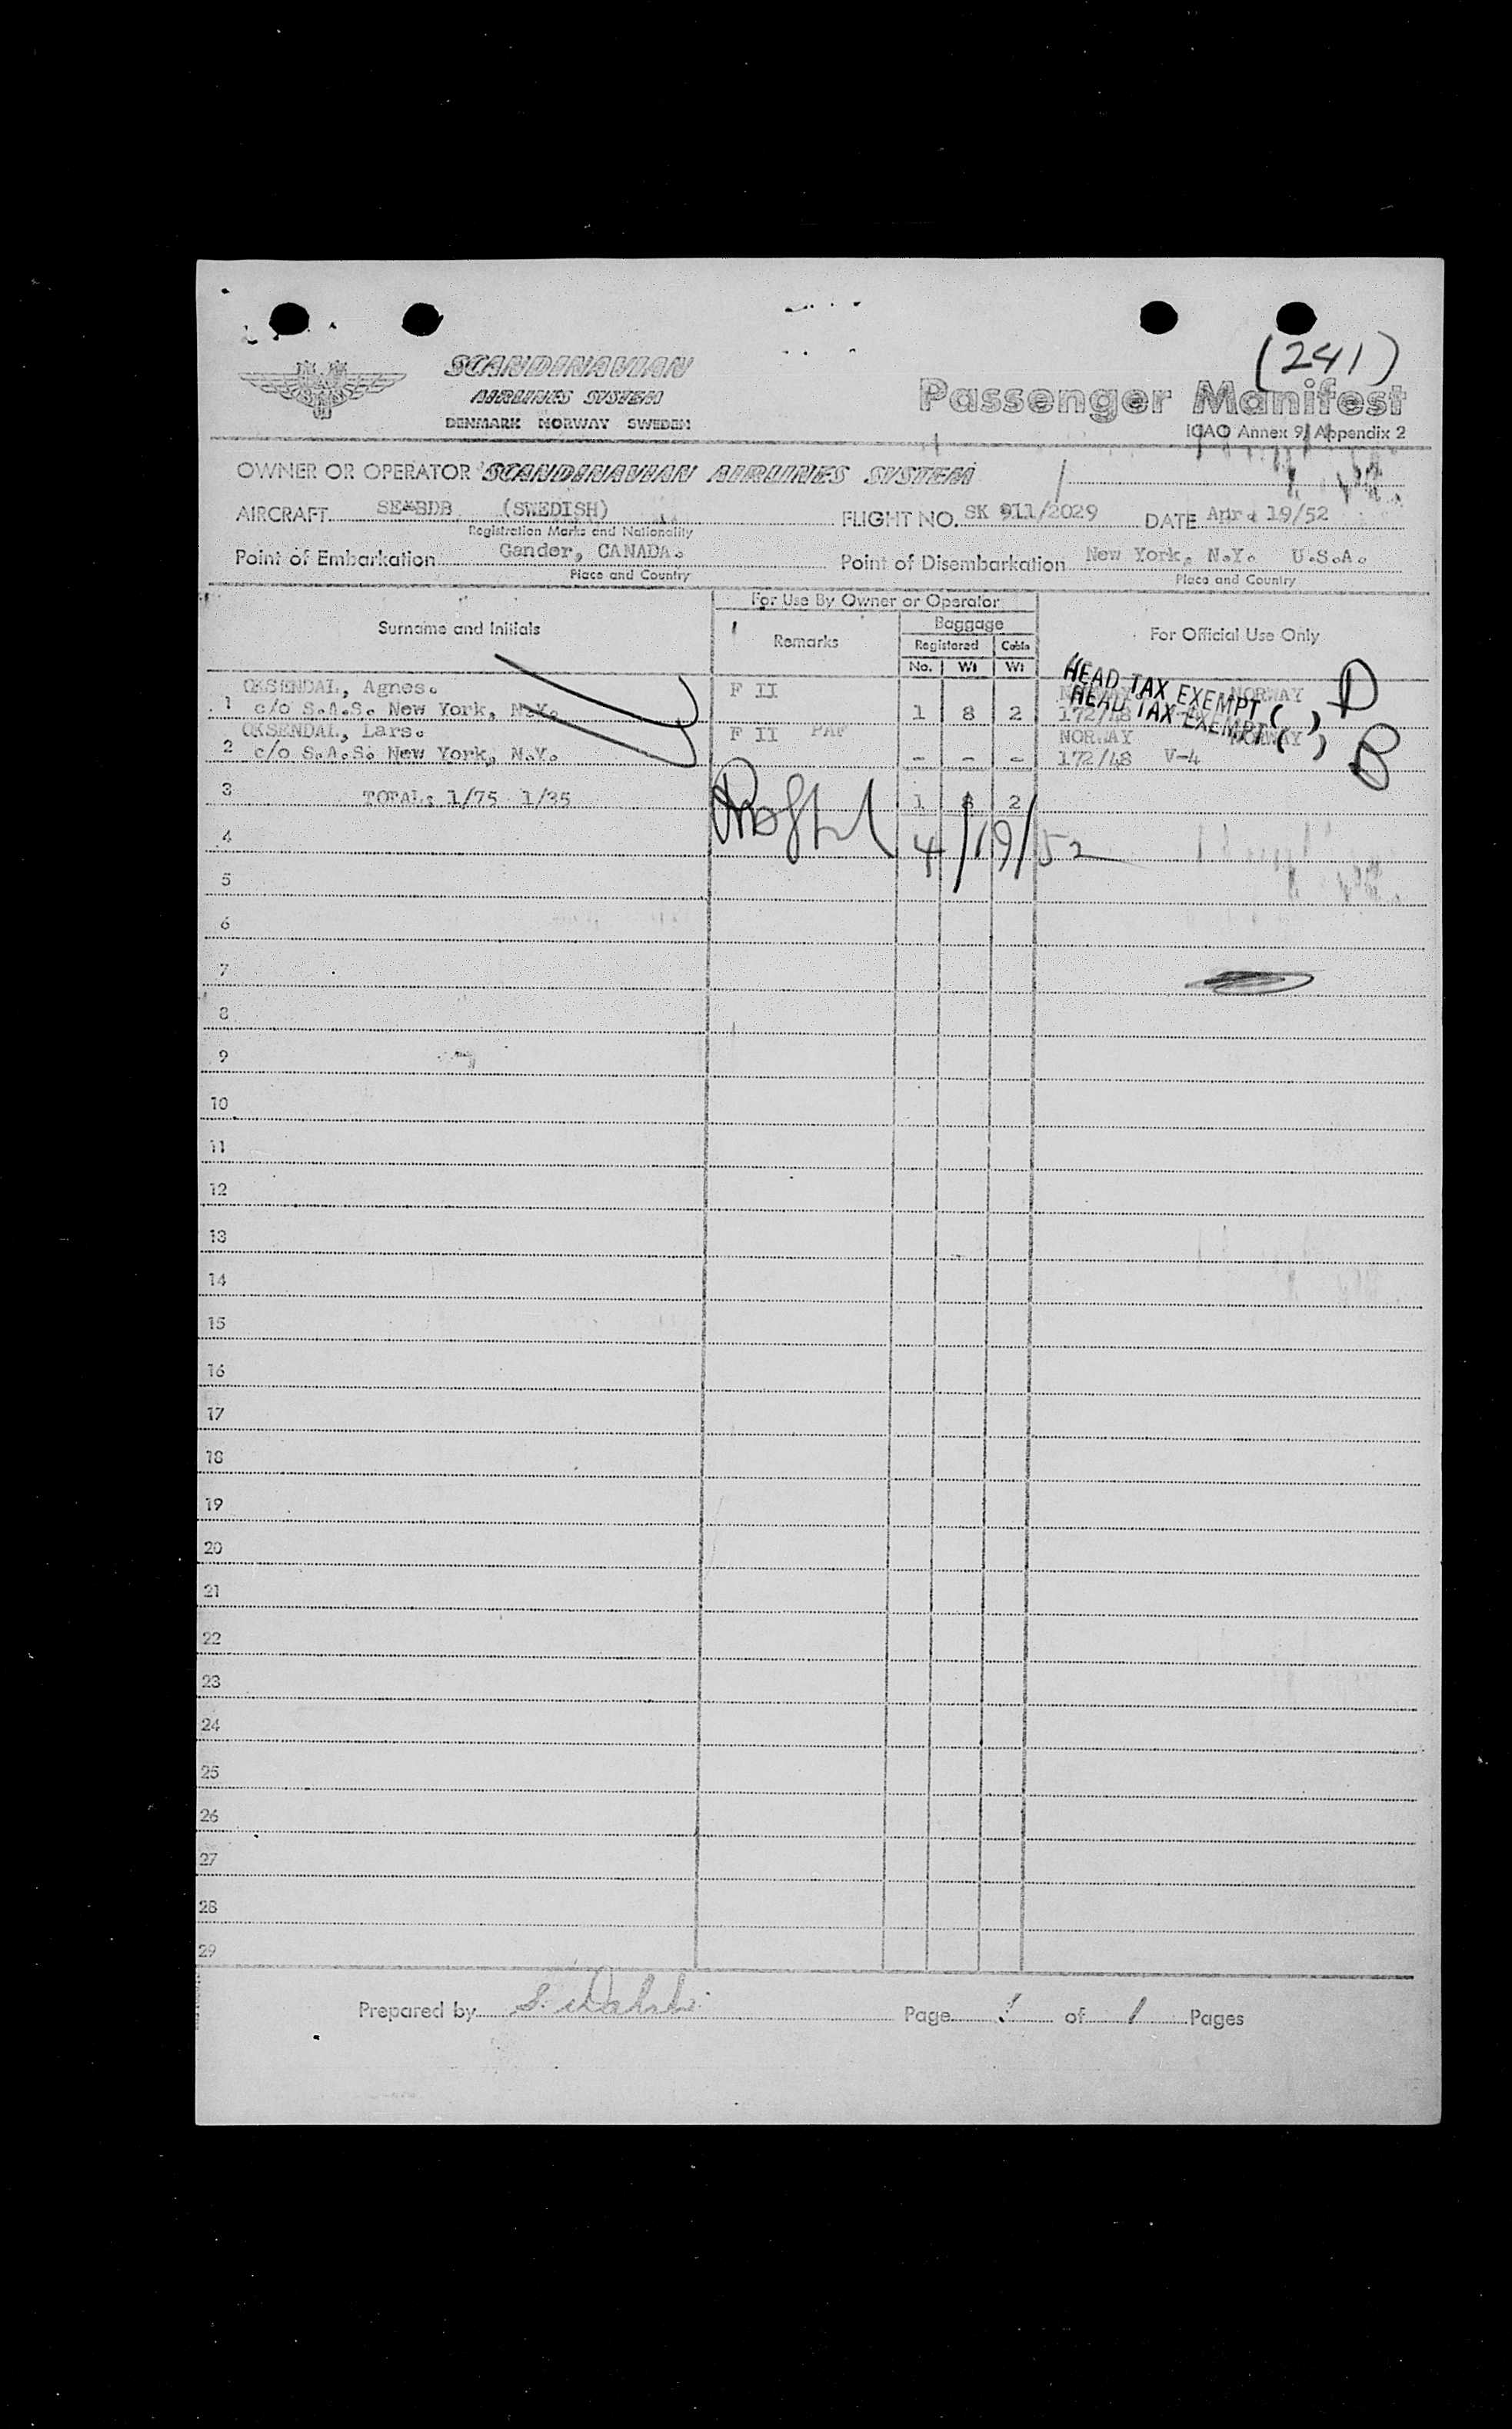 (241)
SCANDINAVIAN
AIRLINES SYSTEM
DENMARK NORWAY SWEDEN
Passenger Manifest
ICAO Annex 9, Appendix 2
OWNER OR OPERATOR SCANDINAVIAN AIRLINES SYSTEM
AIRCRAFT SE-BDB (SWEDISH) FLIGHT NO. SK 911/2029 DATE Apr. 19/52
Registration Marks and Nationality
Point of Embarkation Gander, CANADA. Point of Disembarkation New York, N.Y. U.S.A.
Place and Country Place and Country
For Use By Owner or Operator
Surname and Initials Remarks Baggage For Official Use Only
Registered Cabin
No. Wt Wt
OKSENDAL, Agnes. F II NORWAY NORWAY
HEAD TAX EXEMPT ( ) D
1 c/o S.A.S. New York, N.Y. 1 8 2 172/48
HEAD TAX EXEMPT ( )
OKSENDAL, Lars. F II PAF NORWAY NORWAY
2 c/o S.A.S. New York, N.Y. - - - 172/48 V-4 B
3 TOTAL: 1/75 1/35 1 8 2
4 4/19/52
5
6
7
8
9
10
11
12
13
14
15
16
17
18
19
20
21
22
23
24
25
26
27
28
29
Prepared by Page 1 of 1 Pages